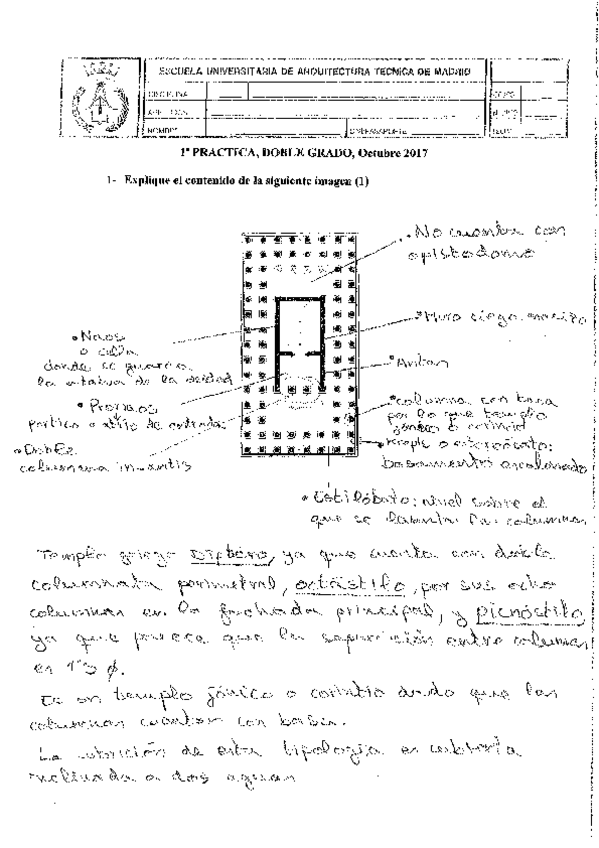 ESCUELA UNIVERSITARIA DE ARQUITECTURA TECNICA DE MADRID
DISCIPLINA
APELLIDOS
NOMBRE
1ª PRACTICA, DOBLE GRADO, Octubre 2017
1- Explique el contenido de la siguiente imagen (1)
• No cuenta con
opistodomo
• Muro ciego, macizo
• Naos
o cella
donde se guarda
la estatua de la deidad
• Antas
• Pronaos
portico o atrio de entrada
• columna con basa
por lo que templo
jónico o corintio
• Doble
columna in antis
basamento escalonado
• Estilóbato: nivel sobre el
que se levantan las columnas
Templo griego Díptero, ya que cuenta con doble
columnata perimetral, octástilo, por sus ocho
columnas en la fachada principal, y Picnóstilo
ya que parece que la separación entre columnas
es 1'5 ø.
Es un templo jónico o corintio dado que las
columnas cuentan con basa.
La de esta tipología es cubierta
inclinada a dos aguas